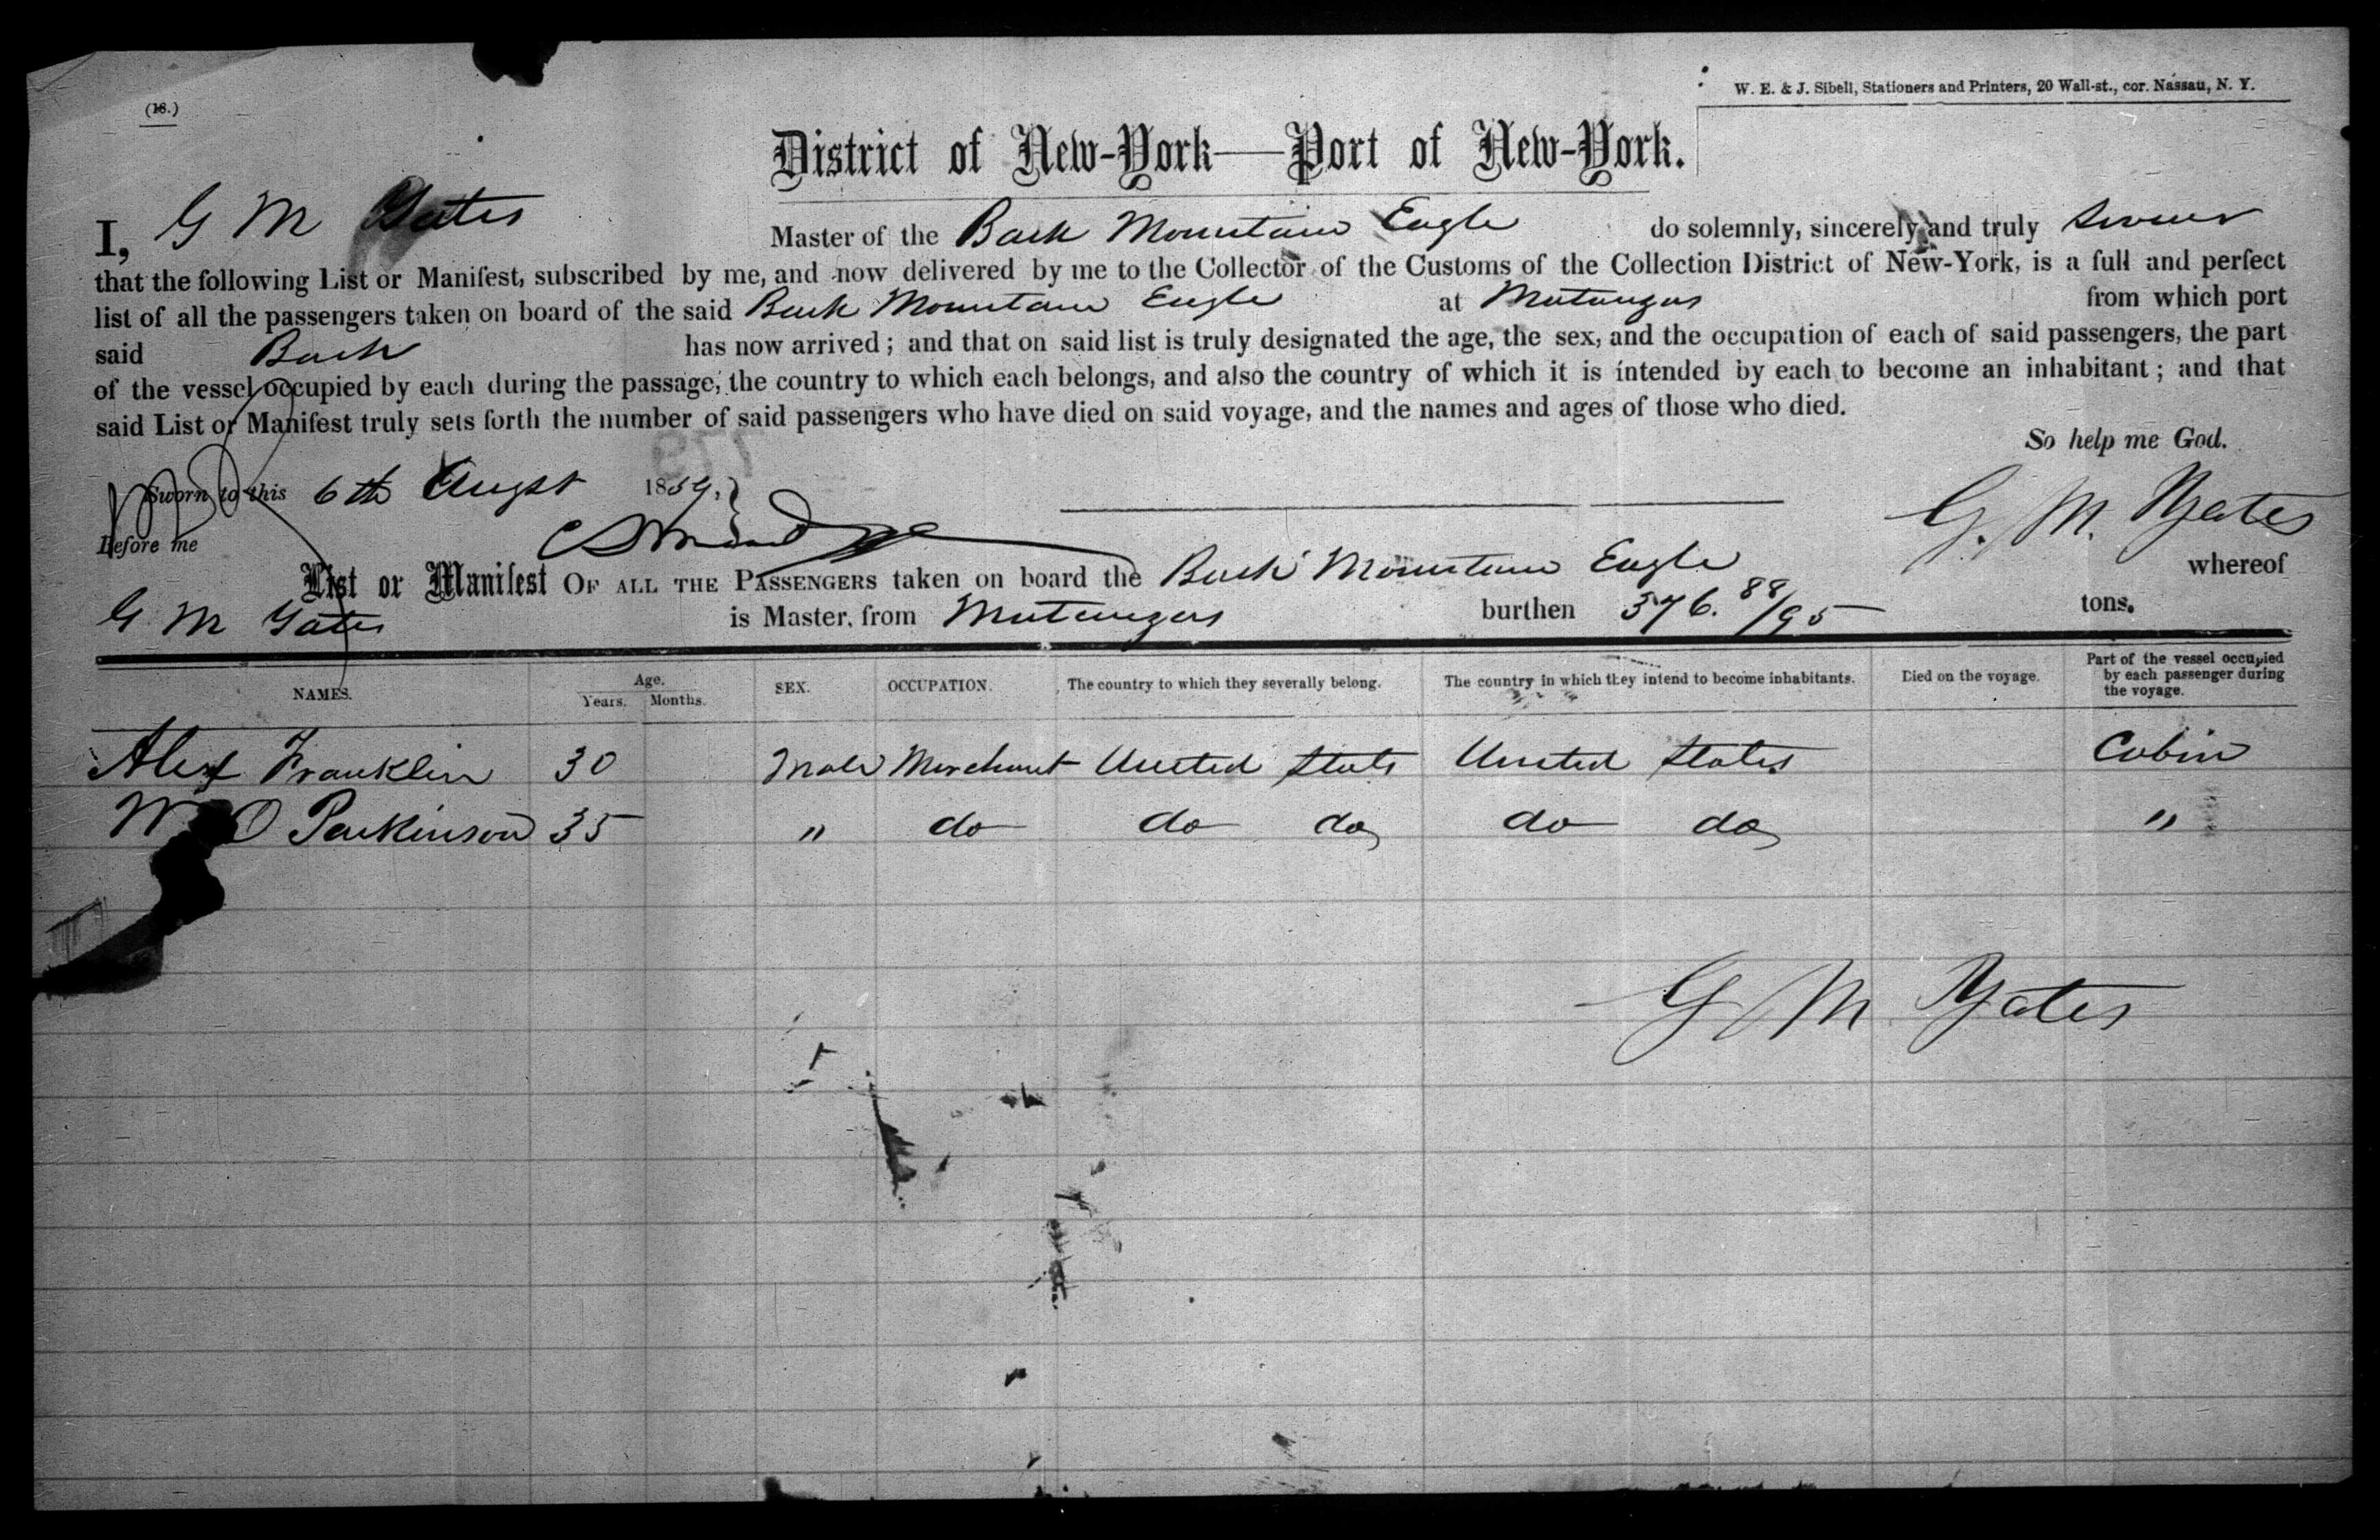 (18.)
W. E. & J. Sibell, Stationers and Printers, 20 Wall-st., cor. Nassau, N. Y.
District of New-York—Port of New-York.
I, G M Yates Master of the Bark Mountain Eagle do solemnly, sincerely and truly swear
that the following List or Manifest, subscribed by me, and now delivered by me to the Collector of the Customs of the Collection District of New-York, is a full and perfect
list of all the passengers taken on board of the said Bark Mountain Eagle at Matanzas from which port
said Bark has now arrived; and that on said list is truly designated the age, the sex, and the occupation of each of said passengers, the part
of the vessel occupied by each during the passage, the country to which each belongs, and also the country of which it is intended by each to become an inhabitant; and that
said List or Manifest truly sets forth the number of said passengers who have died on said voyage, and the names and ages of those who died.
So help me God.
Sworn to this 6th Augst 1859,
G. M. Yates
Before me
List or Manifest OF ALL THE PASSENGERS taken on board the Bark Mountain Eagle whereof
G M Yates is Master, from Matanzas burthen 376. 88/95 tons.
NAMES. Age. Years. Months. SEX. OCCUPATION. The country to which they severally belong. The country in which they intend to become inhabitants. Died on the voyage. Part of the vessel occupied by each passenger during the voyage.
Alex Franklin 30 Male Merchant United States United States Cabin
W O Parkinson 35 " do do do do do "
G M Yates